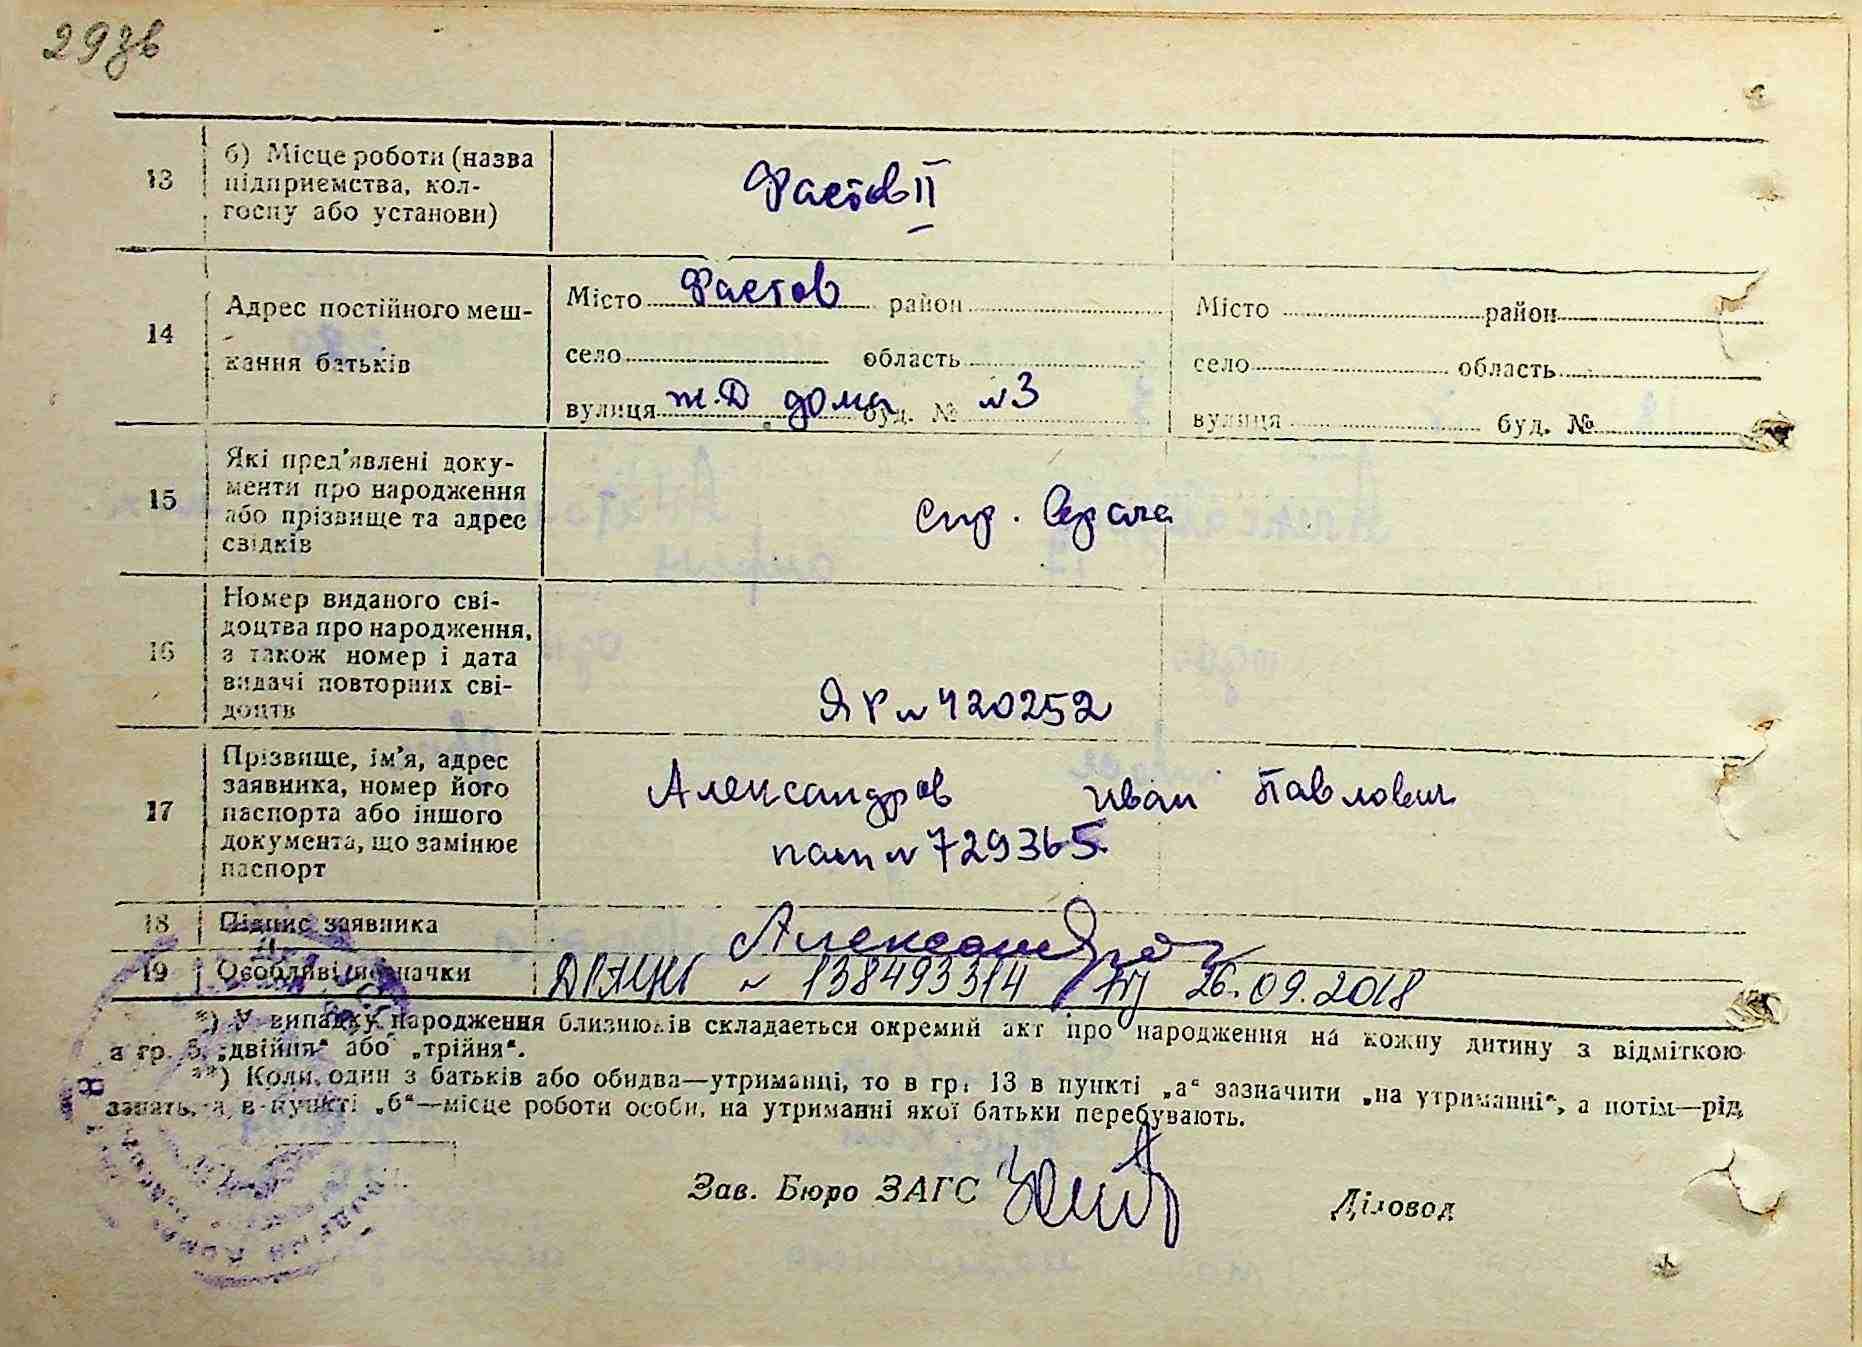 29зв
13
б) Місце роботи (назва
підприємства, кол-
госпу або установи)
Фастов II
14
Адрес постійного меш-
кання батьків
Місто Фастов район
село область
вулиця ж.д дома буд. № №3
Місто район
село область
вулиця буд. №
15
Які пред'явлені доку-
менти про народження
або прізвище та адрес
свідків
спр.
16
Номер виданого сві-
доцтва про народження,
а також номер і дата
видачі повторних сві-
доцтв
ЯР № 420252
17
Прізвище, ім'я, адрес
заявника, номер його
паспорта або іншого
документа, що замінює
паспорт
Александров Иван Павлович
пасп № 729365
18
Підпис заявника
Александров
19
Особливі позначки
№ 138493314 26.09.2018
*) У випадку народження близнюків складається окремий акт про народження на кожну дитину з відміткою
в гр. 5 „двійня“ або „трійня“.
**) Коли один з батьків або обидва—утриманці, то в гр. 13 в пункті „а“ зазначити „на утриманні“, а потім—рід
занять, а в пункті „б“—місце роботи особи, на утриманні якої батьки перебувають.
Зав. Бюро ЗАГС
Діловод